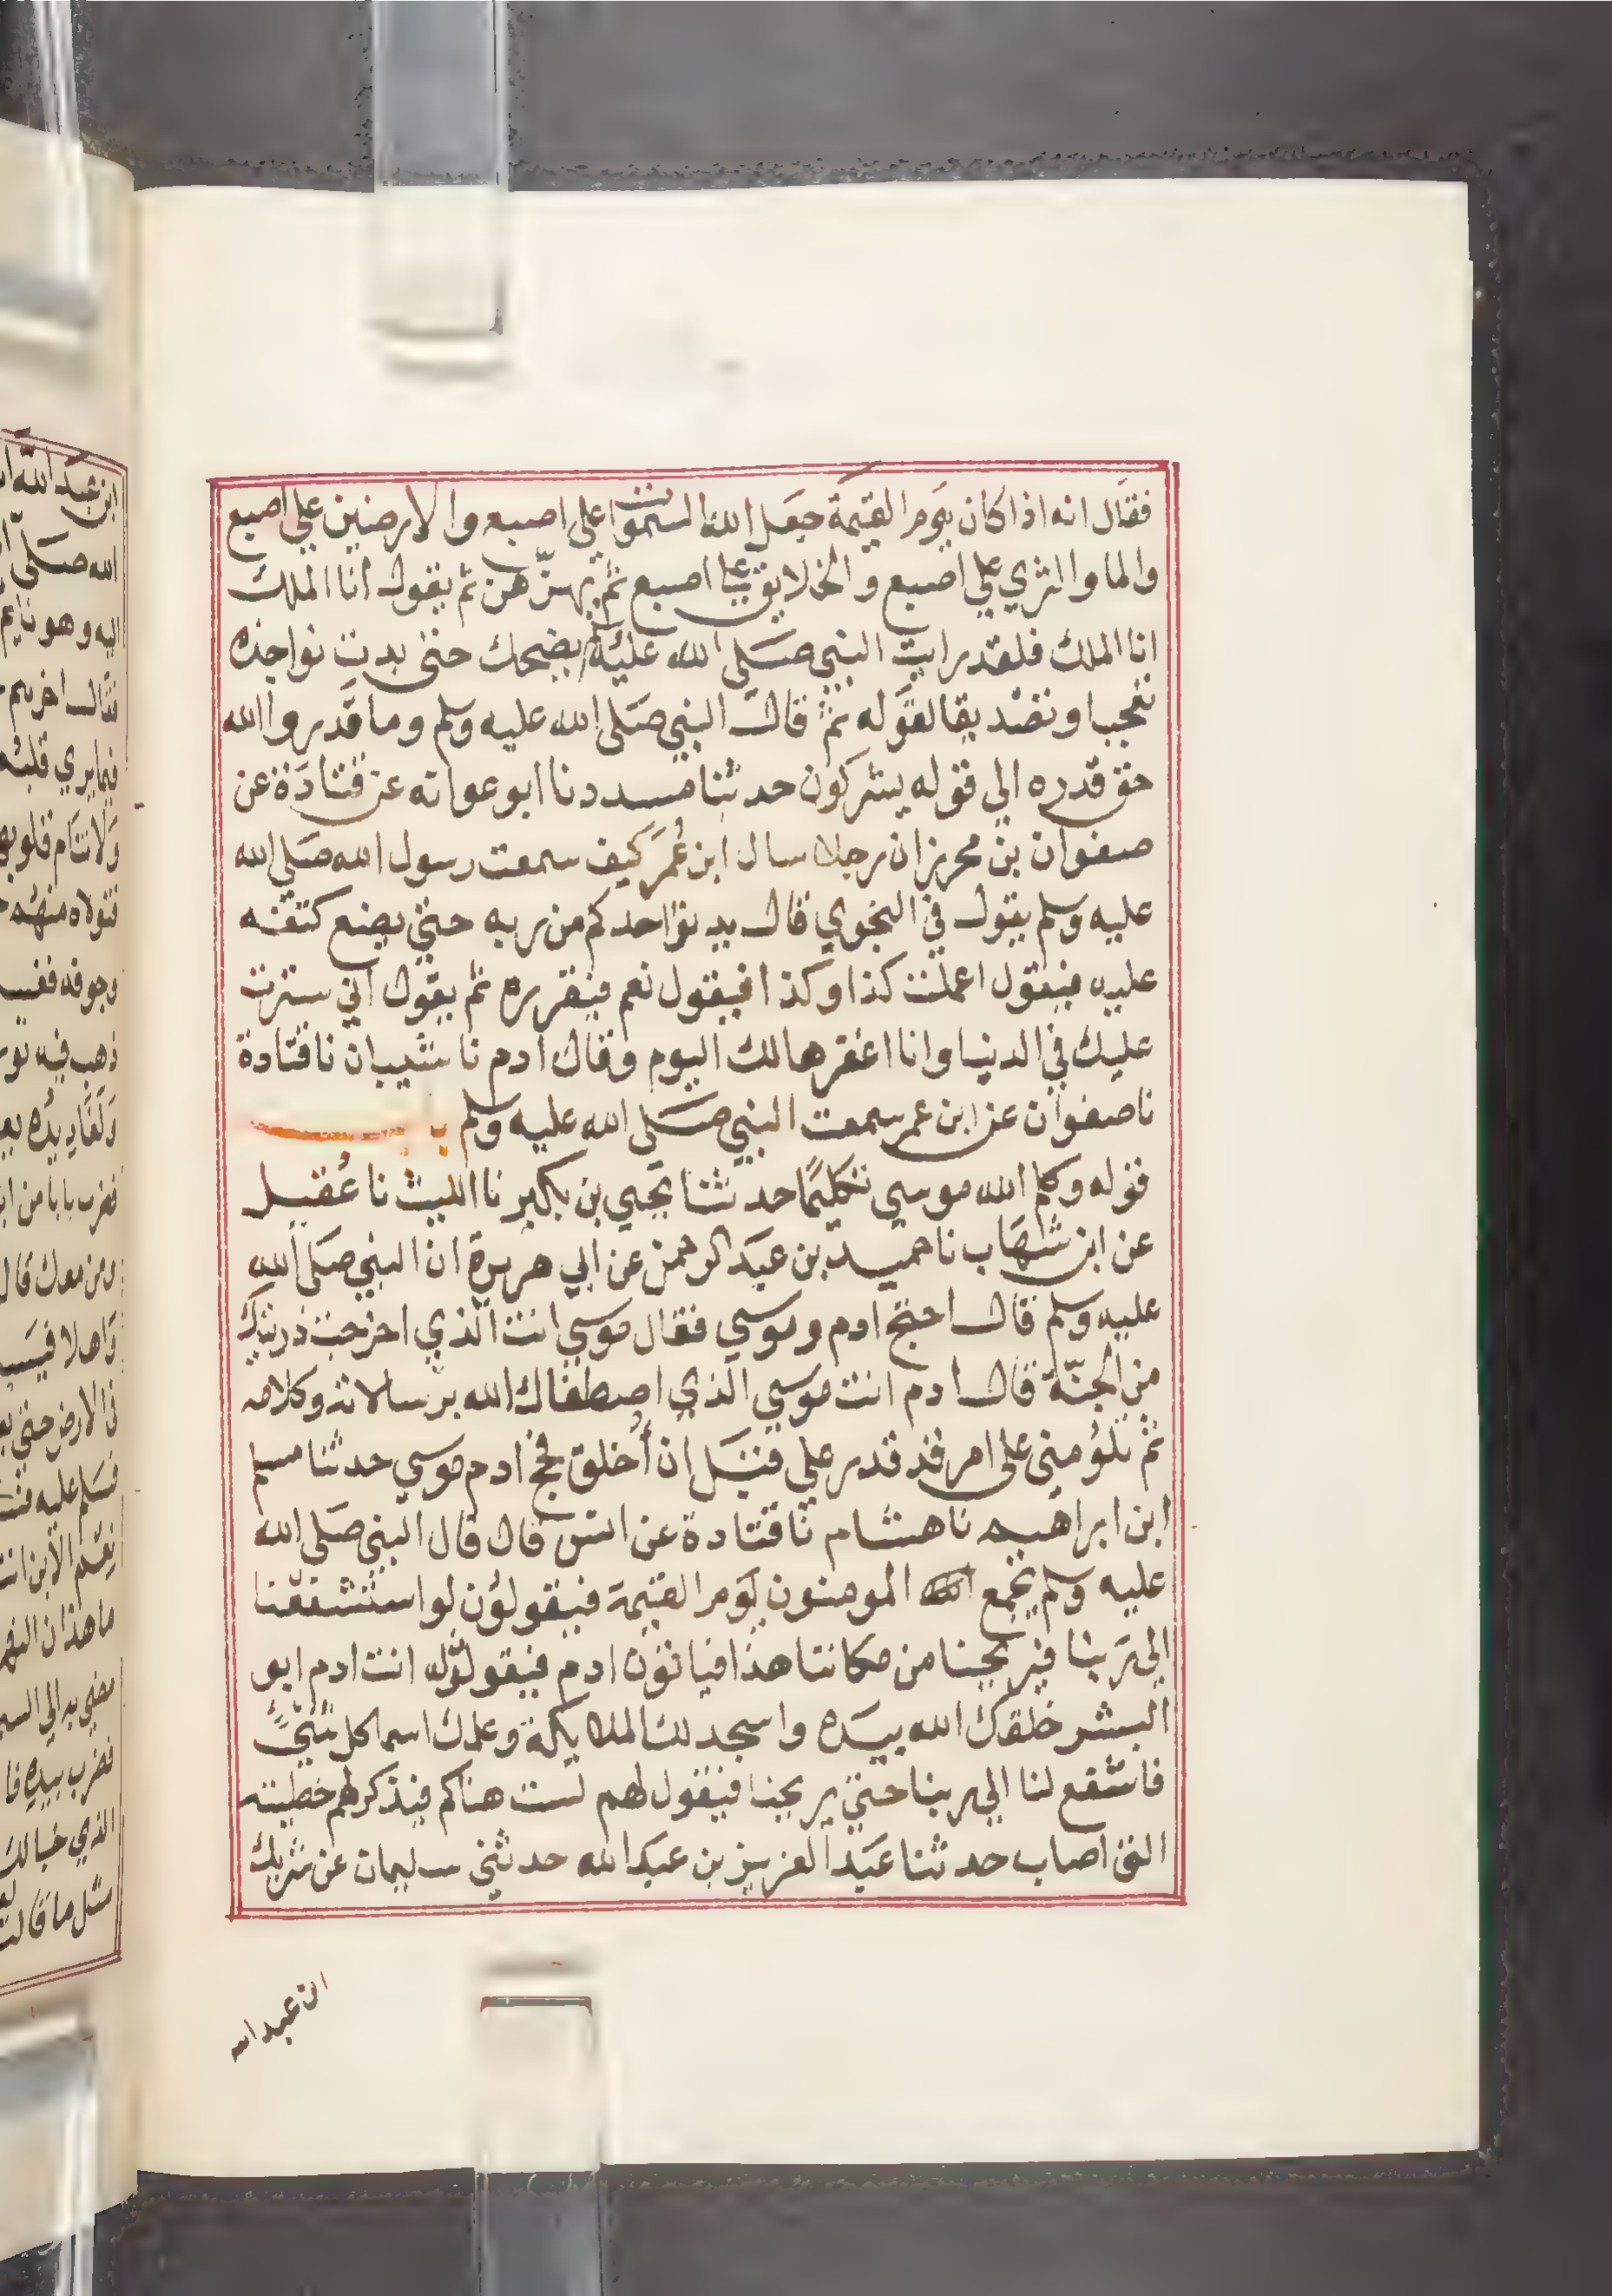 فقال انه اذا كان يوم القيمة جعل الله السموات على اصبع والارضين علي اصبع
والما والثري علي اصبع والخلايق علي اصبع ثم يهزهن ثم يقول انا الملك
انا الملك فلقد رايت النبي صلى الله عليه يضحك حتى بدت نواجذه
تعجبا وتصديقا لقوله ثم قال النبي صلى الله عليه وسلم وما قدروا الله
حق قدره الي قوله يشركون حدثنا مسدد نا ابو عوانه عن قتادة عن
صفوان بن محرز ان رجلا سال ابن عمر كيف سمعت رسول الله صلى الله
عليه وسلم يقول في النجوي قال يدنوا احدكم من ربه حتي يضع كنفه
عليه فيقول اعملت كذا وكذا فيقول نعم فيقرره ثم يقول اني سترت
عليك في الدنيا وانا اغفرها لك اليوم وقال ادم نا شيبان نا قتادة
نا صفوان عن ابن عمر سمعت النبي صلى الله عليه وسلم باب
قوله وكلم الله موسي تكليما حدثنا يحيي بن بكير نا الليث نا عقيل
عن ابن شهاب نا حميد بن عبد الرحمن عن ابي هريرة ان النبي صلى الله
عليه وسلم قال احتج ادم وموسي فقال موسي انت الذي اخرجت ذريتك
من الجنة قال ادم انت موسي الذي اصطفاك الله برسالاته وكلامه
ثم تلومني على امر قد قدر علي قبل ان أخلق فحج ادم موسي حدثنا مسلم
ابن ابراهيم نا هشام نا قتادة عن انس قال قال النبي صلى الله
عليه وسلم يجمع المومنون يوم القيمة فيقولون لو استشفعنا
الي ربنا فيريحنا من مكاننا هذا فياتون ادم فيقولون له انت ادم ابو
البشر خلقك الله بيده واسجد لك الملايكة وعلمك اسما كل شيء
فاشفع لنا الي ربنا حتي يريحنا فيقول لهم لست هناكم فيذكر لهم خطيته
التي اصاب حدثنا عبد العزيز بن عبد الله حدثني سليمان عن شريك
ابن عبد الله